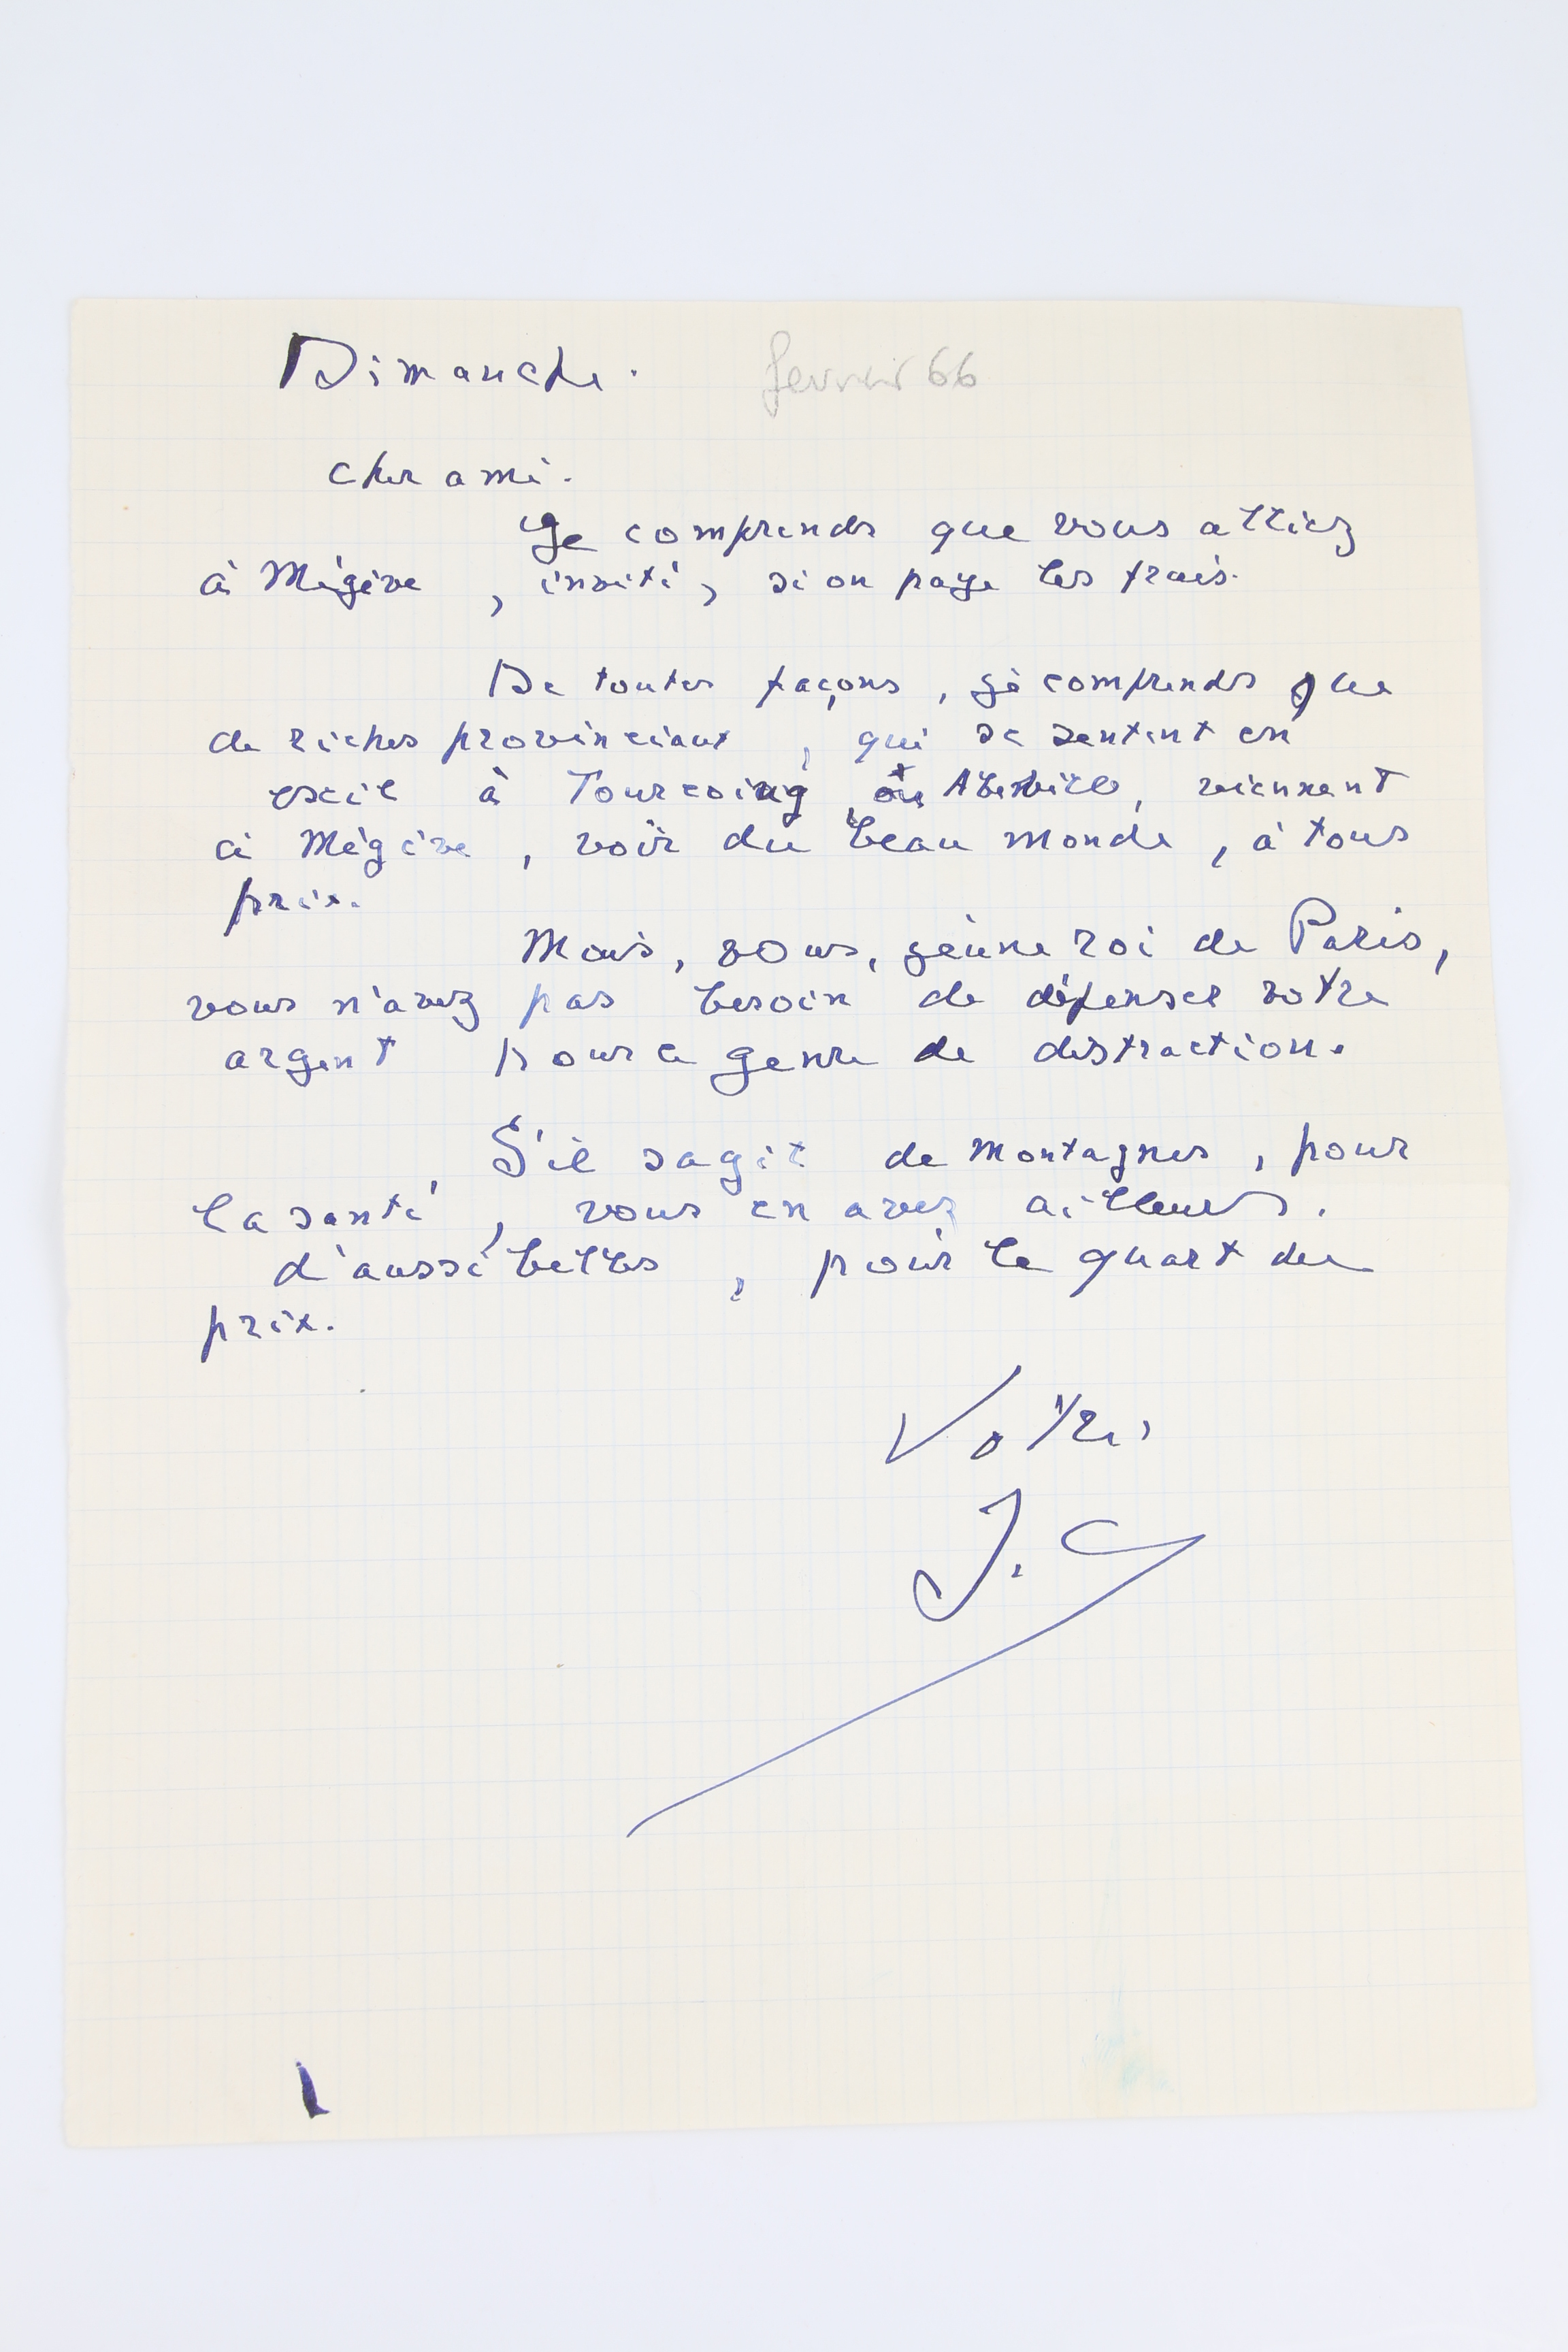 Dimanche. fevrier 66
Cher ami.
Je comprends que vous alliez
à Mégève, invité, si on paye les frais.
De toutes façons, je comprends que
de riches provinciaux, qui se sentent en
exil à Tourcoing ou Abbeville, viennent
à Mégève, voir du beau monde, à tous
prix.
Mais, vous, jeune roi de Paris,
vous n'avez pas besoin de dépenser votre
argent pour ce genre de distraction.
S'il sagit de montagnes, pour
la santé, vous en avez ailleurs.
d'aussi belles, pour le quart du
prix.
Votre,
J. C